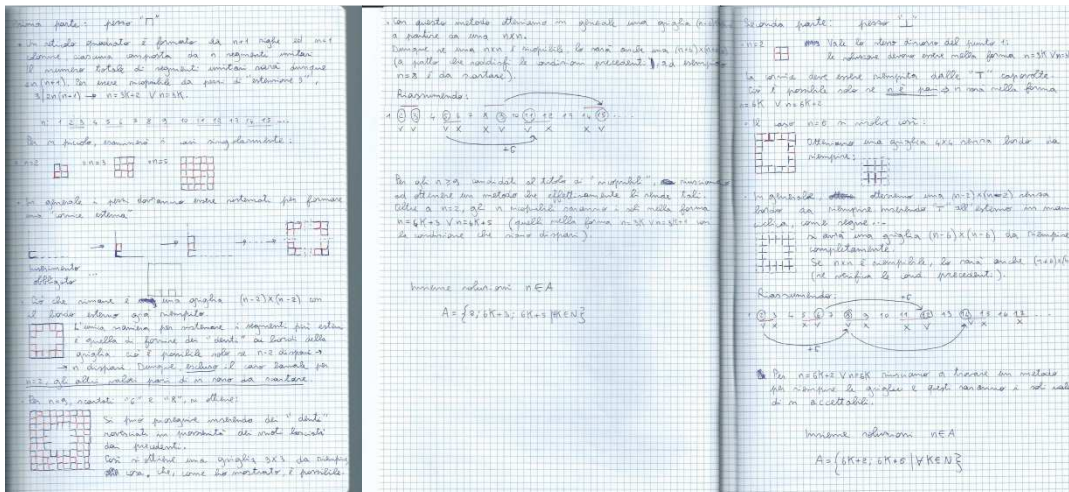 Prima parte: pezzo "⊓"
• Un reticolo quadrato è formato da n+1 righe ed n+1
colonne, ciascuna composta da n segmenti unitari
Il numero totale di segmenti unitari sarà dunque
2n(n+1). Per essere riempibile da pezzi di "estensione 3",
3|2n(n+1) → n=3K+2 ∨ n=3K.
n 1 2 3 4 5 6 7 8 9 10 11 12 13 14 15 ...
Per n piccolo, esaminerò i casi singolarmente:
• n=2 • n=3 • n=5
• In generale i pezzi dovranno essere sistemati per formare
una "cornice esterna"
inserimento
obbligato ...
• Ciò che rimane è una griglia (n-2)×(n-2) con
il bordo esterno già riempito
L'unica maniera per sistemare i segmenti più esterni
è quella di fornire dei "denti" ai bordi della
griglia: ciò è possibile solo se n-2 dispari →
→ n dispari. Dunque, escluso il caso banale per
n=2, gli altri valori pari di n sono da scartare.
Per n=9, scartati "6" e "8", si ottiene:
Si può proseguire inserendo dei "denti"
rovesciati in prossimità dei vuoti lasciati
dai precedenti.
Così si ottiene una griglia 3×3 da riempire
cosa che, come ho mostrato, è possibile.
• Con questo metodo otteniamo in generale una griglia
a partire da una n×n.
Dunque se una n×n è riempibile, lo sarà anche una
(a patto che soddisfi le condizioni precedenti, ad esempio
n=8 è da scartare).
Riassumendo:
1 2 3 4 5 6 7 8 9 10 11 12 13 14 15
V V V X X V V X X V
+6
Per gli n≥9 candidati al titolo di "riempibili", riusciamo
ad ottenere un metodo che effettivamente li rende tali
Oltre a n=2, gli n riempibili saranno i soli nella forma
n=6K+3 ∨ n=6K+5 (quelli nella forma n=3K ∨ n=3K+2 con
la condizione che siano dispari).
Insieme soluzioni n∈A
A={2; 6K+3; 6K+5 | K∈N}
Seconda parte: pezzo "⊥"
• n=2 Vale lo stesso discorso del punto 1:
le soluzioni devono essere nella forma n=3K
La cornice deve essere riempita dalle "T" capovolte.
Ciò è possibile solo se n è pari → n sarà nella forma
n=6K ∨ n=6K+2
• Il caso n=6 si risolve così:
Otteniamo una griglia 4×4 senza bordo da
riempire:
• In generale, otteniamo una (n-2)×(n-2) senza
bordo da riempire inserendo "T" all'esterno in maniera
ciclica, come segue...
si avrà una griglia (n-6)×(n-6) da riempire
completamente.
Se n×n è riempibile, lo sarà anche
(se verifica le cond. precedenti).
Riassumendo:
1 2 3 4 5 6 7 8 9 10 11 12 13 14 15 16
+6
+6
• Per n=6K+2 ∨ n=6K riusciamo a trovare un metodo
per riempire le griglie e questi saranno i soli valori
di n accettabili.
Insieme soluzioni n∈A